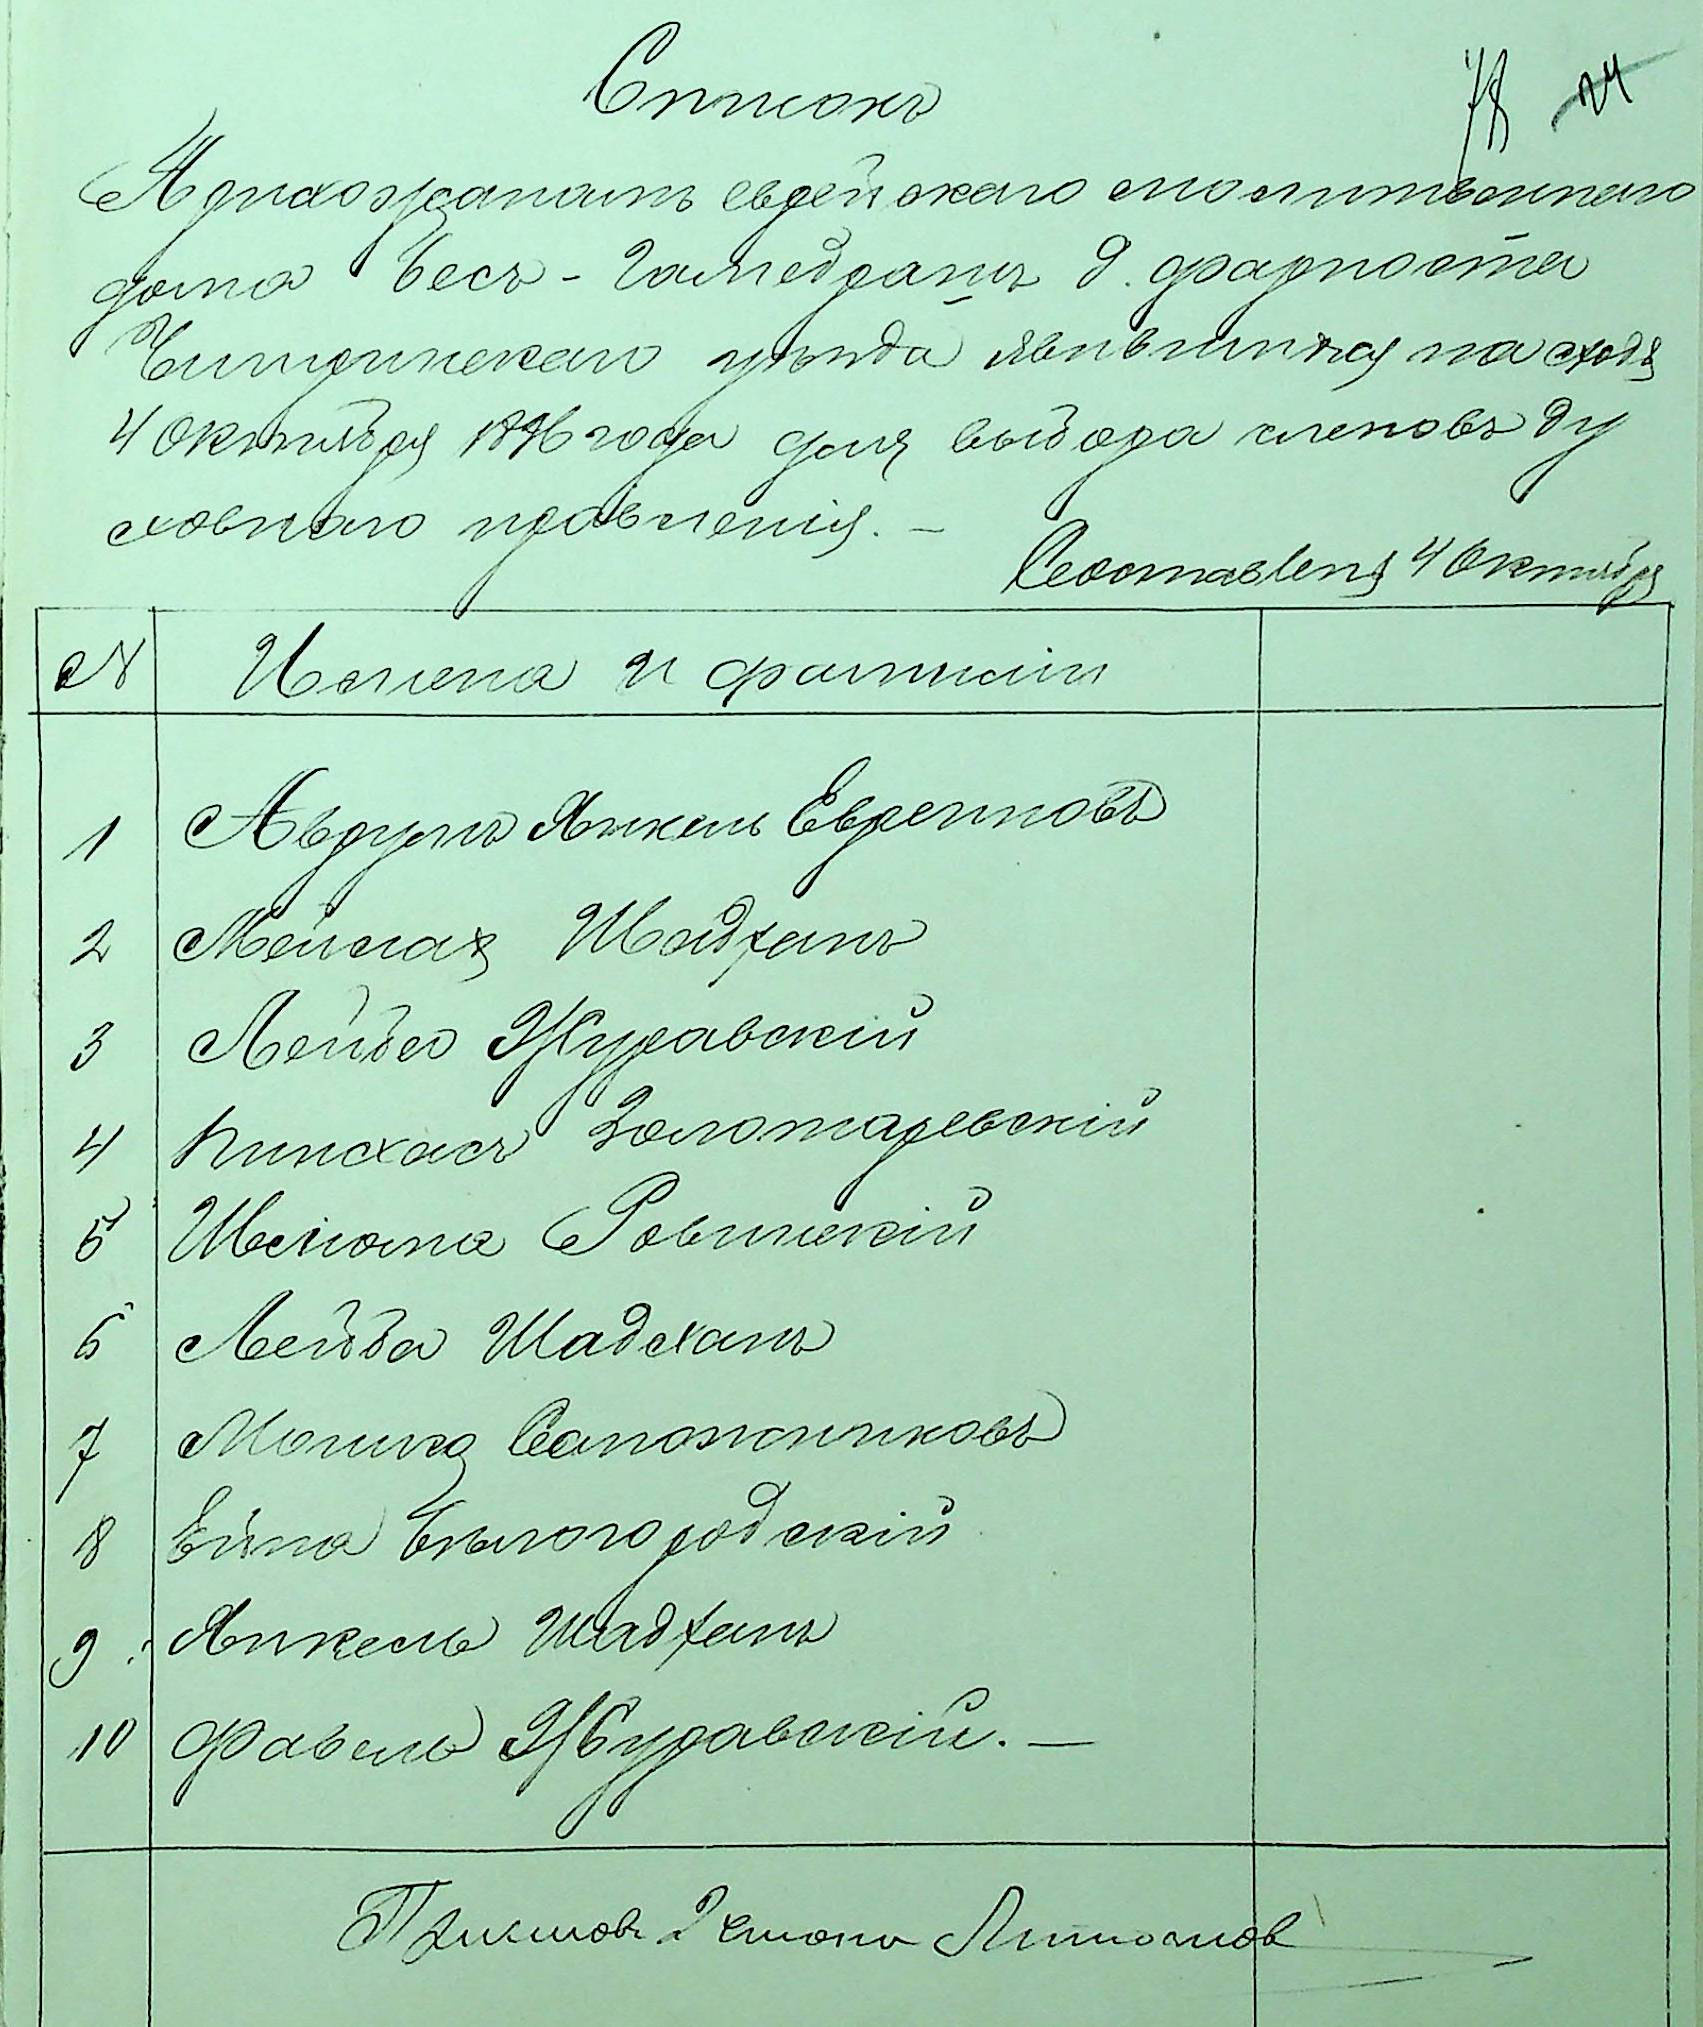 Списокъ
78 24
Прихожанамъ еврейскаго молитвеннаго
дома Бесъ-Гамедрашъ д. фарпоста
Чигиринскаго уѣзда явившихся на сходъ
4 Октября 1896 года для выбора членовъ ду
ховнаго правленія. —
Составленъ 4 Октября
№ Имена и фамиліи
1 Аврумъ Янкель Евреиновъ
2 Мейлахъ Шадханъ
3 Лейба Журавскій
4 Пинхасъ Золотаревскій
5 Шелиома Ровинскій
6 Лейба Шадханъ
7 Мошко Сапожниковъ
8 Ейна Бѣлогородскій
9 Янкель Шадханъ
10 Фавель Журавскій. —
Приставъ 2 стана